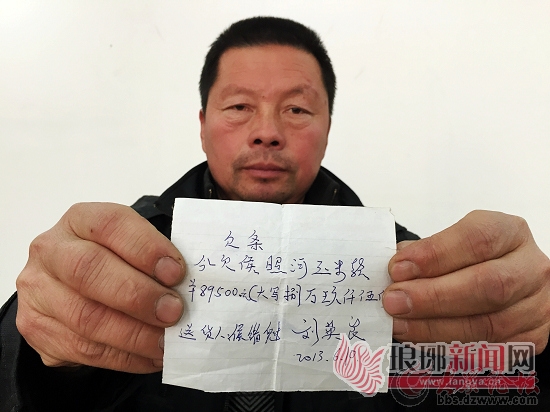 欠条
今欠侯照河玉米款
¥89500元(大写捌万玖仟伍佰
送货人侯绪
刘英良
2013.
琅琊新闻网
www.langya.cn
bbs.dzwww.com